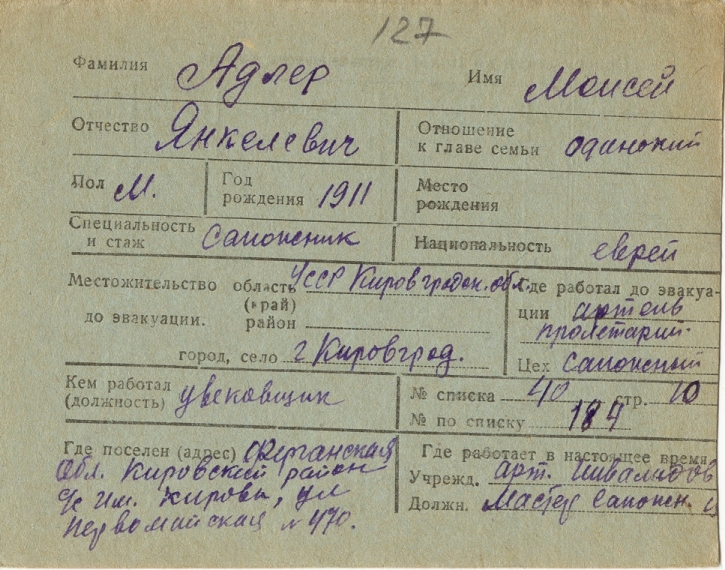 127
Фамилия Адлер Имя Моисей
Отчество Янкелевич Отношение к главе семьи одинокий
Пол М. Год рождения 1911 Место рождения
Специальность и стаж сапожник Национальность еврей
Местожительство область УССР Кировградск. обл. Где работал до эвакуа-
(край) ции артель
до эвакуации. район пролетарий.
город, село г Кировград. Цех сапожный
Кем работал (должность) цвековщик № списка 40 стр. 10
№ по списку 184
Где поселен (адрес) Ферганская Где работает в настоящее время
Обл. Кировский район Учрежд. арт. Инвалидов
с/с им. Кирова, ул Должн. Мастер сапожн. ц
первомайская № 470.